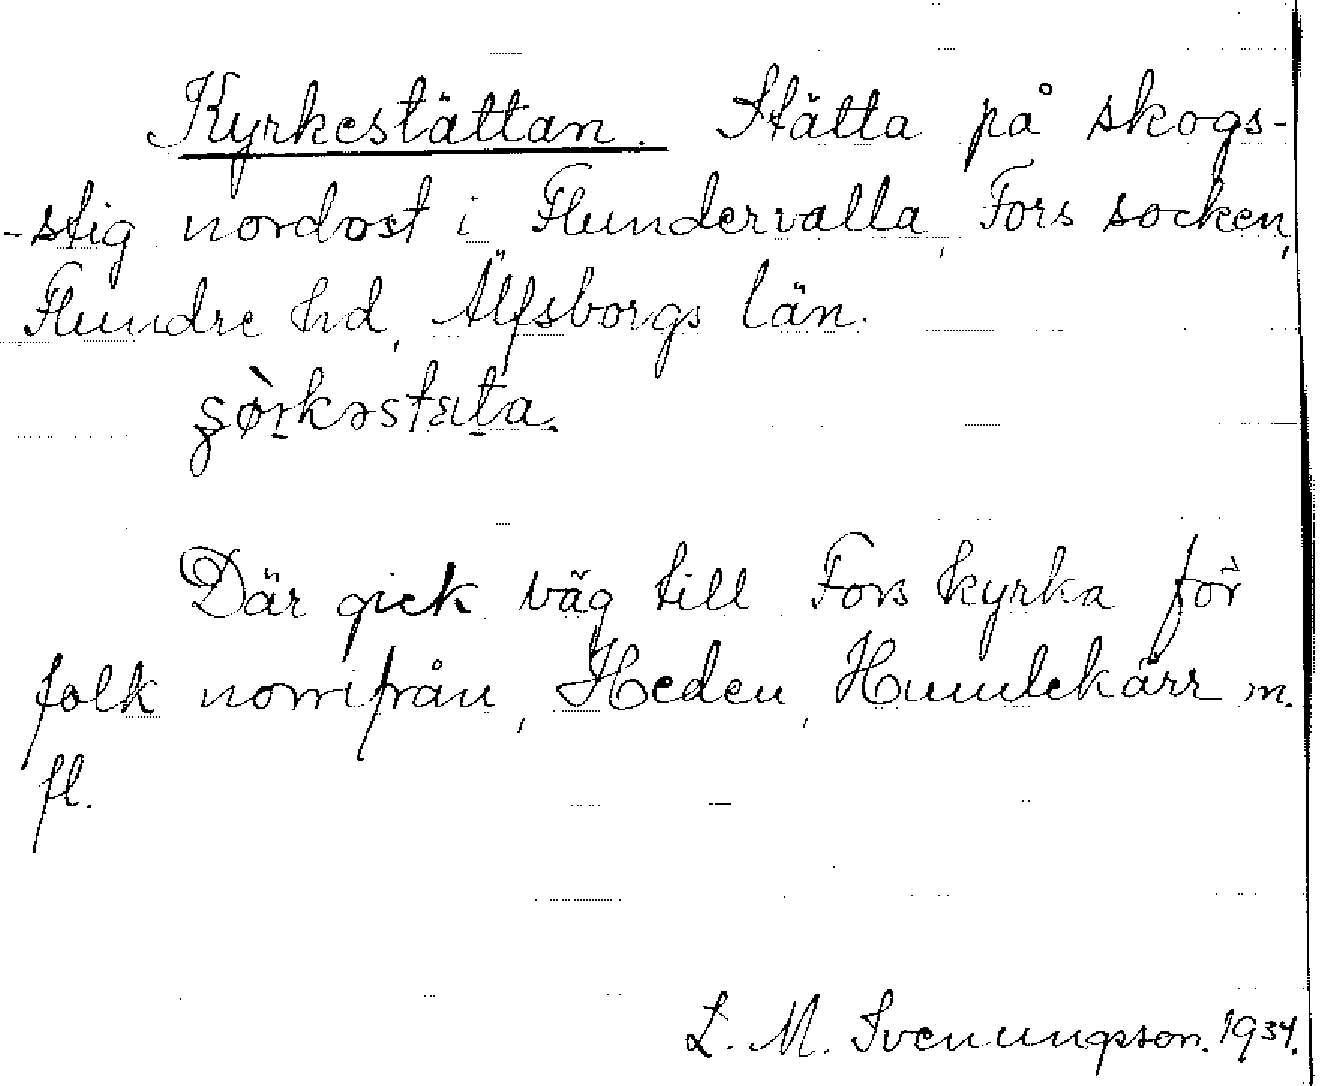 Kyrkestättan. Stätta på skogs-
-stig nordost i Flundervalla, Fors socken,
Flundre hd, Älfsborgs län.
Där gick väg till Fors kyrka för
folk norrifrån, Heden, Hundekärr m.
fl.
L. M. Svenungsson. 1934.